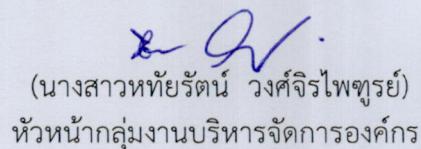 (นางสาวหทัยรัตน์ วงศ์จิรไพฑูรย์)
หัวหน้ากลุ่มงานบริหารจัดการองค์กร